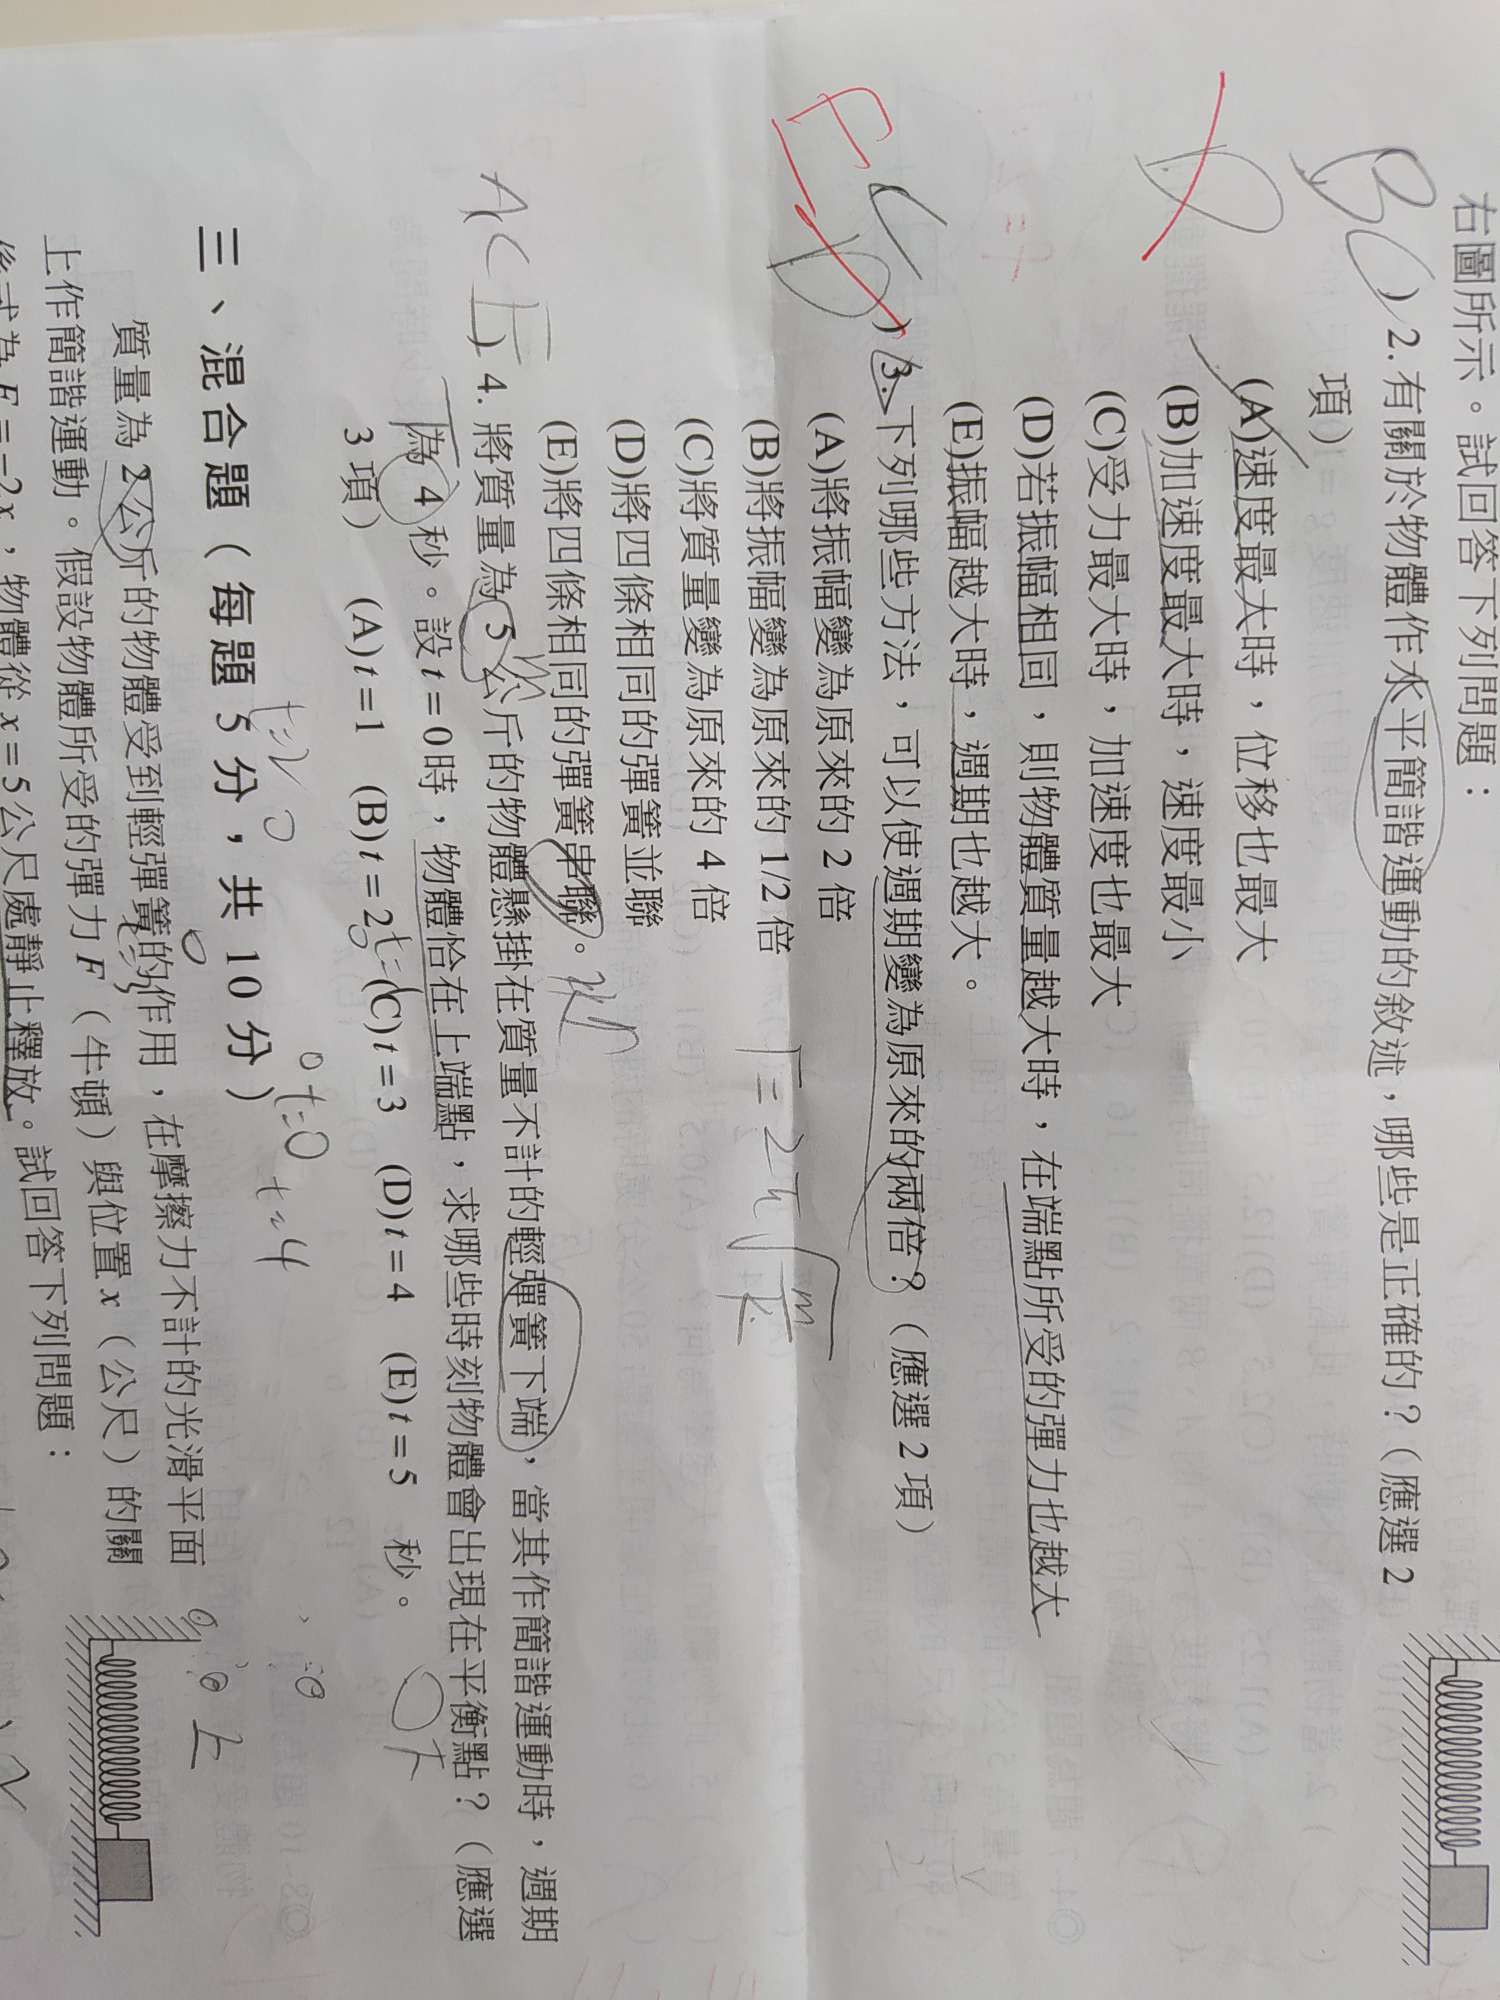 右圖所示。試回答下列問題：
BC ) 2. 有關於物體作水平簡諧運動的敘述，哪些是正確的？（應選 2
項）
(A)速度最大時，位移也最大
(B)加速度最大時，速度最小
(C)受力最大時，加速度也最大
(D)若振幅相同，則物體質量越大時，在端點所受的彈力也越大
(E)振幅越大時，週期也越大。
CD E ) 3. 下列哪些方法，可以使週期變為原來的兩倍？（應選 2 項）
(A)將振幅變為原來的 2 倍
(B)將振幅變為原來的 1/2 倍
T=2π√m/k
(C)將質量變為原來的 4 倍
(D)將四條相同的彈簧並聯
(E)將四條相同的彈簧串聯。
ACE ) 4. 將質量為 5 公斤的物體懸掛在質量不計的輕彈簧下端，當其作簡諧運動時，週期
m
為 4 秒。設 t＝0時，物體恰在上端點，求哪些時刻物體會出現在平衡點？（應選
3 項） (A) t＝1 (B) t＝2 (C) t＝3 (D) t＝4 (E) t＝5 秒。
t=1
t=0
t=4
t=2
t=3
三、混合題（每題 5 分，共 10 分）
質量為 2 公斤的物體受到輕彈簧的作用，在摩擦力不計的光滑平面
上作簡諧運動。假設物體所受的彈力 F（牛頓）與位置 x（公尺）的關
係式為 F＝−2x，物體從 x＝5 公尺處靜止釋放。試回答下列問題：